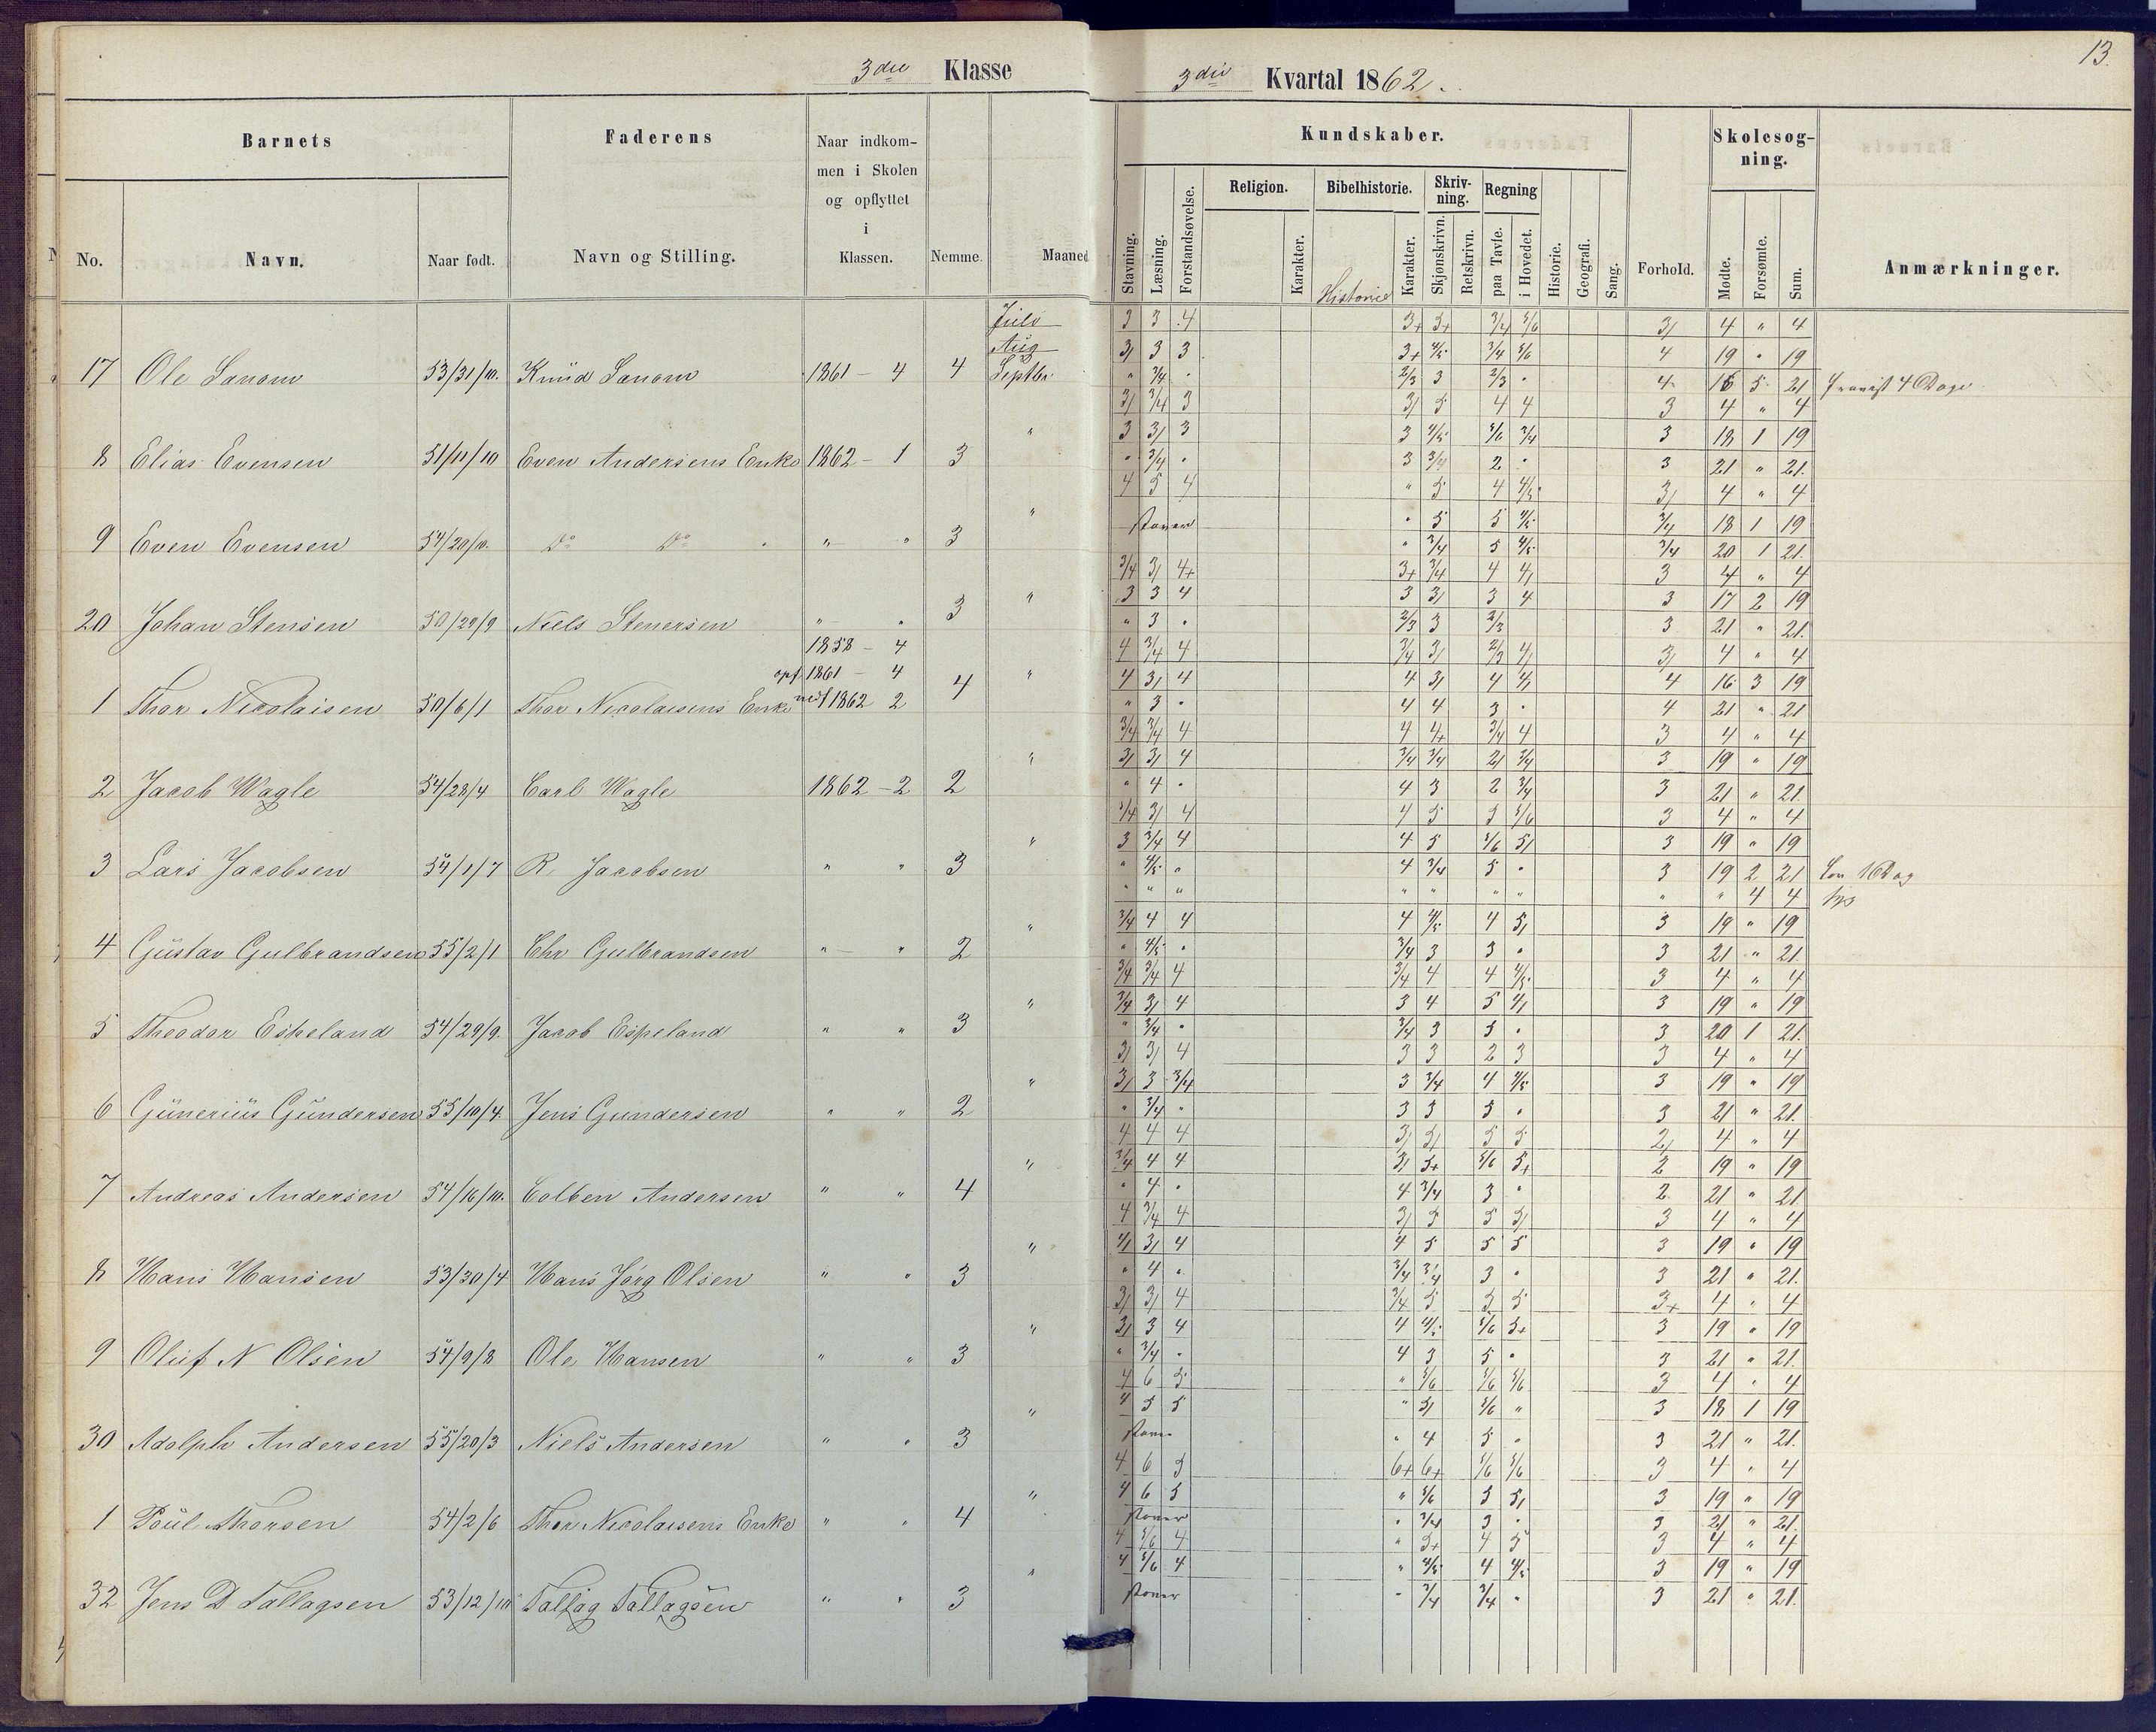 13.
3die Klasse
3die Kvartal 1862.
Barnets
Faderens
Naar indkom-
men i Skolen
og opflyttet
i
Klassen.
Nemme.
Maaned
No.
Navn.
Naar født.
Navn og Stilling.
Kundskaber.
Stavning.
Læsning.
Forstandsøvelse.
Religion.
Karakter.
Bibelhistorie.
Historie
Karakter.
Skriv-
ning.
Skjønskrivn.
Retskrivn.
Regning
paa Tavle.
i Hovedet.
Historie.
Geografi.
Sang.
Forhold.
Skolesøg-
ning.
Mødte.
Forsømte.
Sum.
Anmærkninger.
Juli 3 3 4 4 " 4
Aug 3/ 3 3 4 19 " 19
17 Ole Sanom 53/31/10. Knud Sanom 1861 – 4 4 Septbr. " 3/4 " 2/3 3 2/3 " 4 16 5 21 4 Dage
3/ 3/4 3 3/ 5 4 4 3 4 " 4
3 3/ 3 3 4/5 5/6 3/4 3 18 1 19
8 Elias Evensen 51/11/10 Even Andersens Enke 1862 – 1 3 " " 3/4 " 3 3/4 2 " 3 21 " 21.
4 5 4 " 5 4 4/5 3/ 4 " 4
staver " 5 5 4/5 3/4 18 1 19
9 Even Evensen 54/20/10. Do Do " " 3 " " 3/4 5 4/5 3/4 20 1 21.
3/4 3/ 4+ 3+ 3/4 4 4/ 3 4 " 4
3 3 4 3 3/ 3 4 3 17 2 19
20 Johan Stensen 50/29/9 Niels Stenersen " " 3 " " 3 " 2/3 3 2/3 3 21 " 21.
1858 – 4 4 3/4 4 3/4 3/ 2/3 4/ 3/ 4 " 4
opf. 1861 – 4 4 3/ 4 4 3/ 4 4/ 4 16 3 19
1 Thor Nicolaisen 50/6/1 Thor Nicolaisens Enke 1862 2 4 " " 3 " 4 4 3 " 4 21 " 21
3/4 3/4 4 4 4+ 3/4 4 3 4 " 4
3/ 3/ 4 3/4 3/4 2/ 3/4 3 19 " 19
2 Jacob Wagle 54/28/4 Carl Wagle 1862 – 2 2 " " 4 " 4 3 2 3/4 3 21 " 21.
3/4 3/ 4 4 5 5 5/6 3 4 " 4
3 3/4 4 4 5 5/6 5/ 3 19 " 19
3 Lars Jacobsen 54/1/7 R. Jacobsen " " 3 " " 4/5 " 4 3/4 5 " 3 19 2 21 1 Dag
" " " " " " " " " 4 4
3/4 4 4 4 4/5 4 5/ 3 19 " 19
4 Gustav Gulbrandsen 55/2/1 Chr Gulbrandsen " " 2 " " 4/5 " 3/4 3 3 " 3 21 " 21.
3/4 3/4 4 3/4 4 4 4/5 3 4 " 4
3/4 3/ 4 3 4 5 4/ 3 19 " 19
5 Theodor Espeland 54/29/9. Jacob Espeland " " 3 " " 3/4 " 3/4 3 3 " 3 20 1 21.
3/ 3/ 4 3 3 2 3 3 4 " 4
3/ 3 3/4 3 3/4 4 4/5 3 19 " 19
6 Gunerius Gundersen 55/10/4. Jens Gundersen " " 2 " " 3/4 " 3 3 3 " 3 21 " 21.
4 4 4 3/ 5/ 5 5 2/ 4 " 4
3/4 4 4 3/ 5+ 5/6 5+ 2 19 " 19
7 Andreas Andersen 54/16/10. Colben Andersen " " 4 " " 4 " 4 3/4 3 " 2 21 " 21
4 3/4 4 3/ 5 5 5/ 3 4 " 4
4/ 3/ 4 4 5 5 5 3 19 " 19
8 Hans Hansen 53/30/4 Hans Jörg Olsen " " 3 " " 4 " 3/4 3/4 3 " 3 21 " 21.
3/ 3/ 4 3/4 5 5 5 3+ 4 " 4
3/ 3 4 4 4/5 5/6 5+ 3 19 " 19
9 Oluf N Olsen 54/9/8 Ole Hansen " " 3 " " 3/4 " 4 3 5 " 3 21 " 21.
4 6 5 " 5/6 5/6 5/6 3 4 " 4
4 5 5 " 5/ 5/6 " 3 18 1 19
30 Adolph Andersen 55/20/3 Niels Andersen " " 3 " " 4 5 " 3 21 " 21.
4 6 5 6+ 6+ 5/6 5/6 3 4 " 4
4 6 5 " 5/6 5 5/ 3 19 " 19
1 Poul Thorsen 54/2/6 Thor Nicolaisens Enke " " 4 " staver " 3/4 3 " 3 21 " 21.
4 5/6 4 " 5+ 4 5 3 4 " 4
4 5/6 4 " 4/5 4 4/5 3 19 " 19
32 Jens D Tallagsen 53/12/10 Tallag Tallagsen " " 3 " staver " 3/4 3/4 " 3 21 " 21.